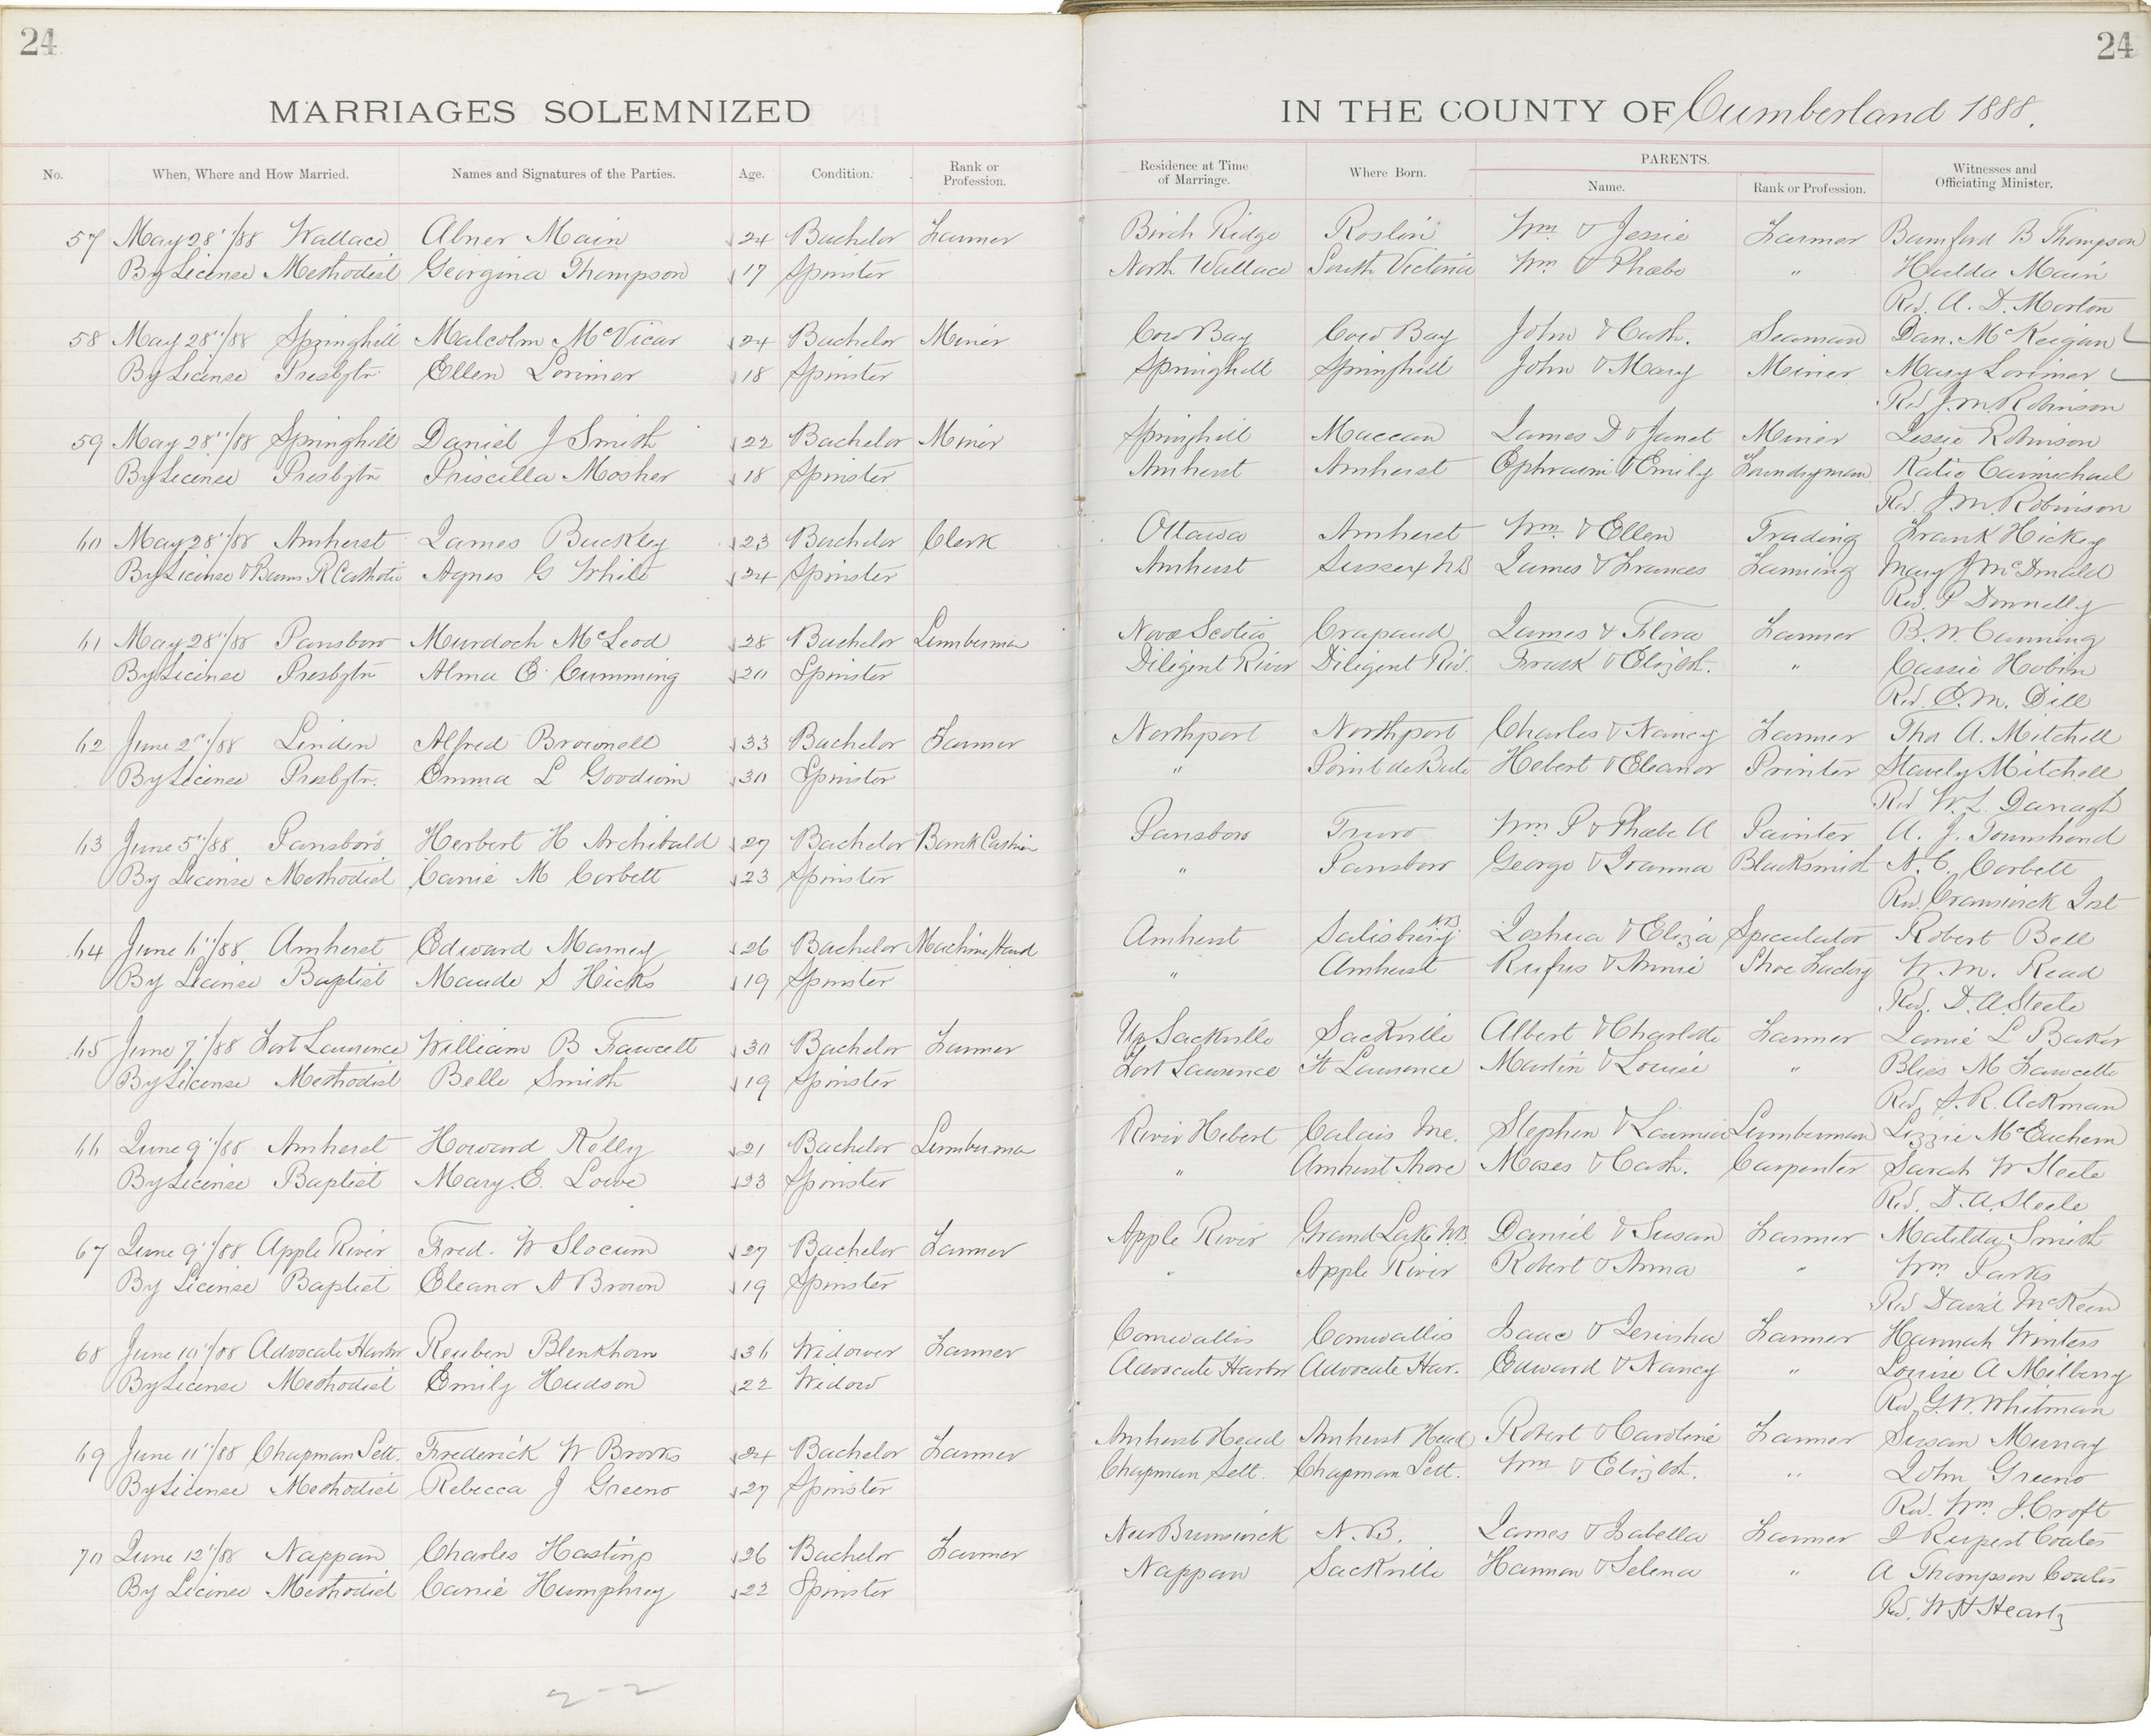 24
24
MARRIAGES SOLEMNIZED
IN THE COUNTY OF Cumberland 1888.
No. When, Where and How Married. Names and Signatures of the Parties. Age. Condition. Rank or Profession. Residence at Time of Marriage. Where Born. PARENTS. Name. Rank or Profession. Witnesses and Officiating Minister.
57 May 28"/88 Wallace Abner Main 24 Bachelor Farmer Birch Ridge Roslin Wm & Jessie Farmer Bamford B Thompson
By License Methodist Georgina Thompson 17 Spinster North Wallace South Victoria Wm & Phœbe " Hulda Main
Rev. A. D. Morton
58 May 28"/88 Springhill Malcolm McVicar 24 Bachelor Miner Cow Bay Cow Bay John & Cath. Seaman Dan. McKeigan
By License Presbytn Ellen Lorimer 18 Spinster Springhill Springhill John & Mary Miner Mary Lorimer
Rev J. M. Robinson
59 May 28"/88 Springhill Daniel J Smith 22 Bachelor Miner Springhill Maccan James D & Janet Miner Lessie Robinson
By License Presbytn Priscilla Mosher 18 Spinster Amherst Amherst Ephraim & Emily Foundryman Katie Carmichael
Rev J. M. Robinson
60 May 28"/88 Amherst James Buckley 23 Bachelor Clerk Ottawa Amherst Wm & Ellen Trading Frank Hickey
By License & Banns R Catholic Agnes G White 24 Spinster Amherst Sussex NB James & Frances Farming Mary J McDonald
Rev. P Donnelly
61 May 28"/88 Parrsboro Murdoch McLeod 28 Bachelor Lumberman Nova Scotia Crapaud James & Flora Farmer B. W. Cumming
By License Presbytn Alma E Cumming 20 Spinster Diligent River Diligent Riv. Frank & Elizbth. " Cassie Hobin
Rev. E. M. Dill
62 June 2"/88 Linden Alfred Brownell 33 Bachelor Farmer Northport Northport Charles & Nancy Farmer Tho A. Mitchell
By License Presbytn. Emma L Goodwin 30 Spinster " Point de Bute Hebert & Eleanor Printer Stavely Mitchell
Rev W. L. Darragh
63 June 5"/88 Parrsboro Herbert H Archibald 27 Bachelor Bank Cashier Parrsboro Truro Wm P & Phœbe A Painter A. J. Townshend
By License Methodist Carrie M Corbett 23 Spinster " Parrsboro George & Joanna Blacksmith N. C. Corbett
Rev. Cranswick Jost
64 June 6"/88 Amherst Edward Marney 26 Bachelor Machine Hand Amherst Salisbury NB Joshua & Eliza Speculator Robert Bell
By License Baptist Maude S Hicks 19 Spinster " Amherst Rufus & Annie Shoe Factory W. M. Read
Rev. D. A. Steele
65 June 7"/88 Fort Lawrence William B Fawcett 30 Bachelor Farmer Up Sackville Sackville Albert & Charlotte Farmer Janie L Baker
By License Methodist Belle Smith 19 Spinster Fort Lawrence Ft Lawrence Martin & Louise " Bliss M Fawcette
Rev. S. R. Ackman
66 June 9"/88 Amherst Howard Kelly 21 Bachelor Lumberman River Hebert Calais Me. Stephen & Lumberman Lizzie McEachern
By License Baptist Mary. E. Lowe 23 Spinster " Amherst Shore Moses & Cath. Carpenter Sarah W Steele
Rev. D. A. Steele
67 June 9"/88 Apple River Fred. W Slocum 27 Bachelor Farmer Apple River Grand Lake N.B. Daniel & Susan Farmer Matilda Smith
By License Baptist Eleanor A Brown 19 Spinster " Apple River Robert & Anna " Wm Parks
Rev David McKeen
68 June 10"/88 Advocate Harbor Reuben Blenkhorn 36 Widower Farmer Cornwallis Cornwallis Isaac & Jerusha Farmer Hannah Winters
By License Methodist Emily Hudson 22 Widow Advocate Harbor Advocate Har. Edward & Nancy " Louise A Milberry
Rev. G. W. Whitman
69 June 11"/88 Chapman Sett. Frederick W Brooks 24 Bachelor Farmer Amherst Head Amherst Head Robert & Caroline Farmer Susan Murray
By License Methodist Rebecca J Greeno 27 Spinster Chapman Sett. Chapman Sett. Wm & Elizbth. " John Greeno
Rev. Wm J. Croft
70 June 12"/88 Nappan Charles Hastings 26 Bachelor Farmer New Brunswick N.B. James & Isabella Farmer J Rupert Coates
By License Methodist Carrie Humphrey 22 Spinster Nappan Sackville Harmon & Selena " A Thompson Coates
Rev. W H Heartz
2-2